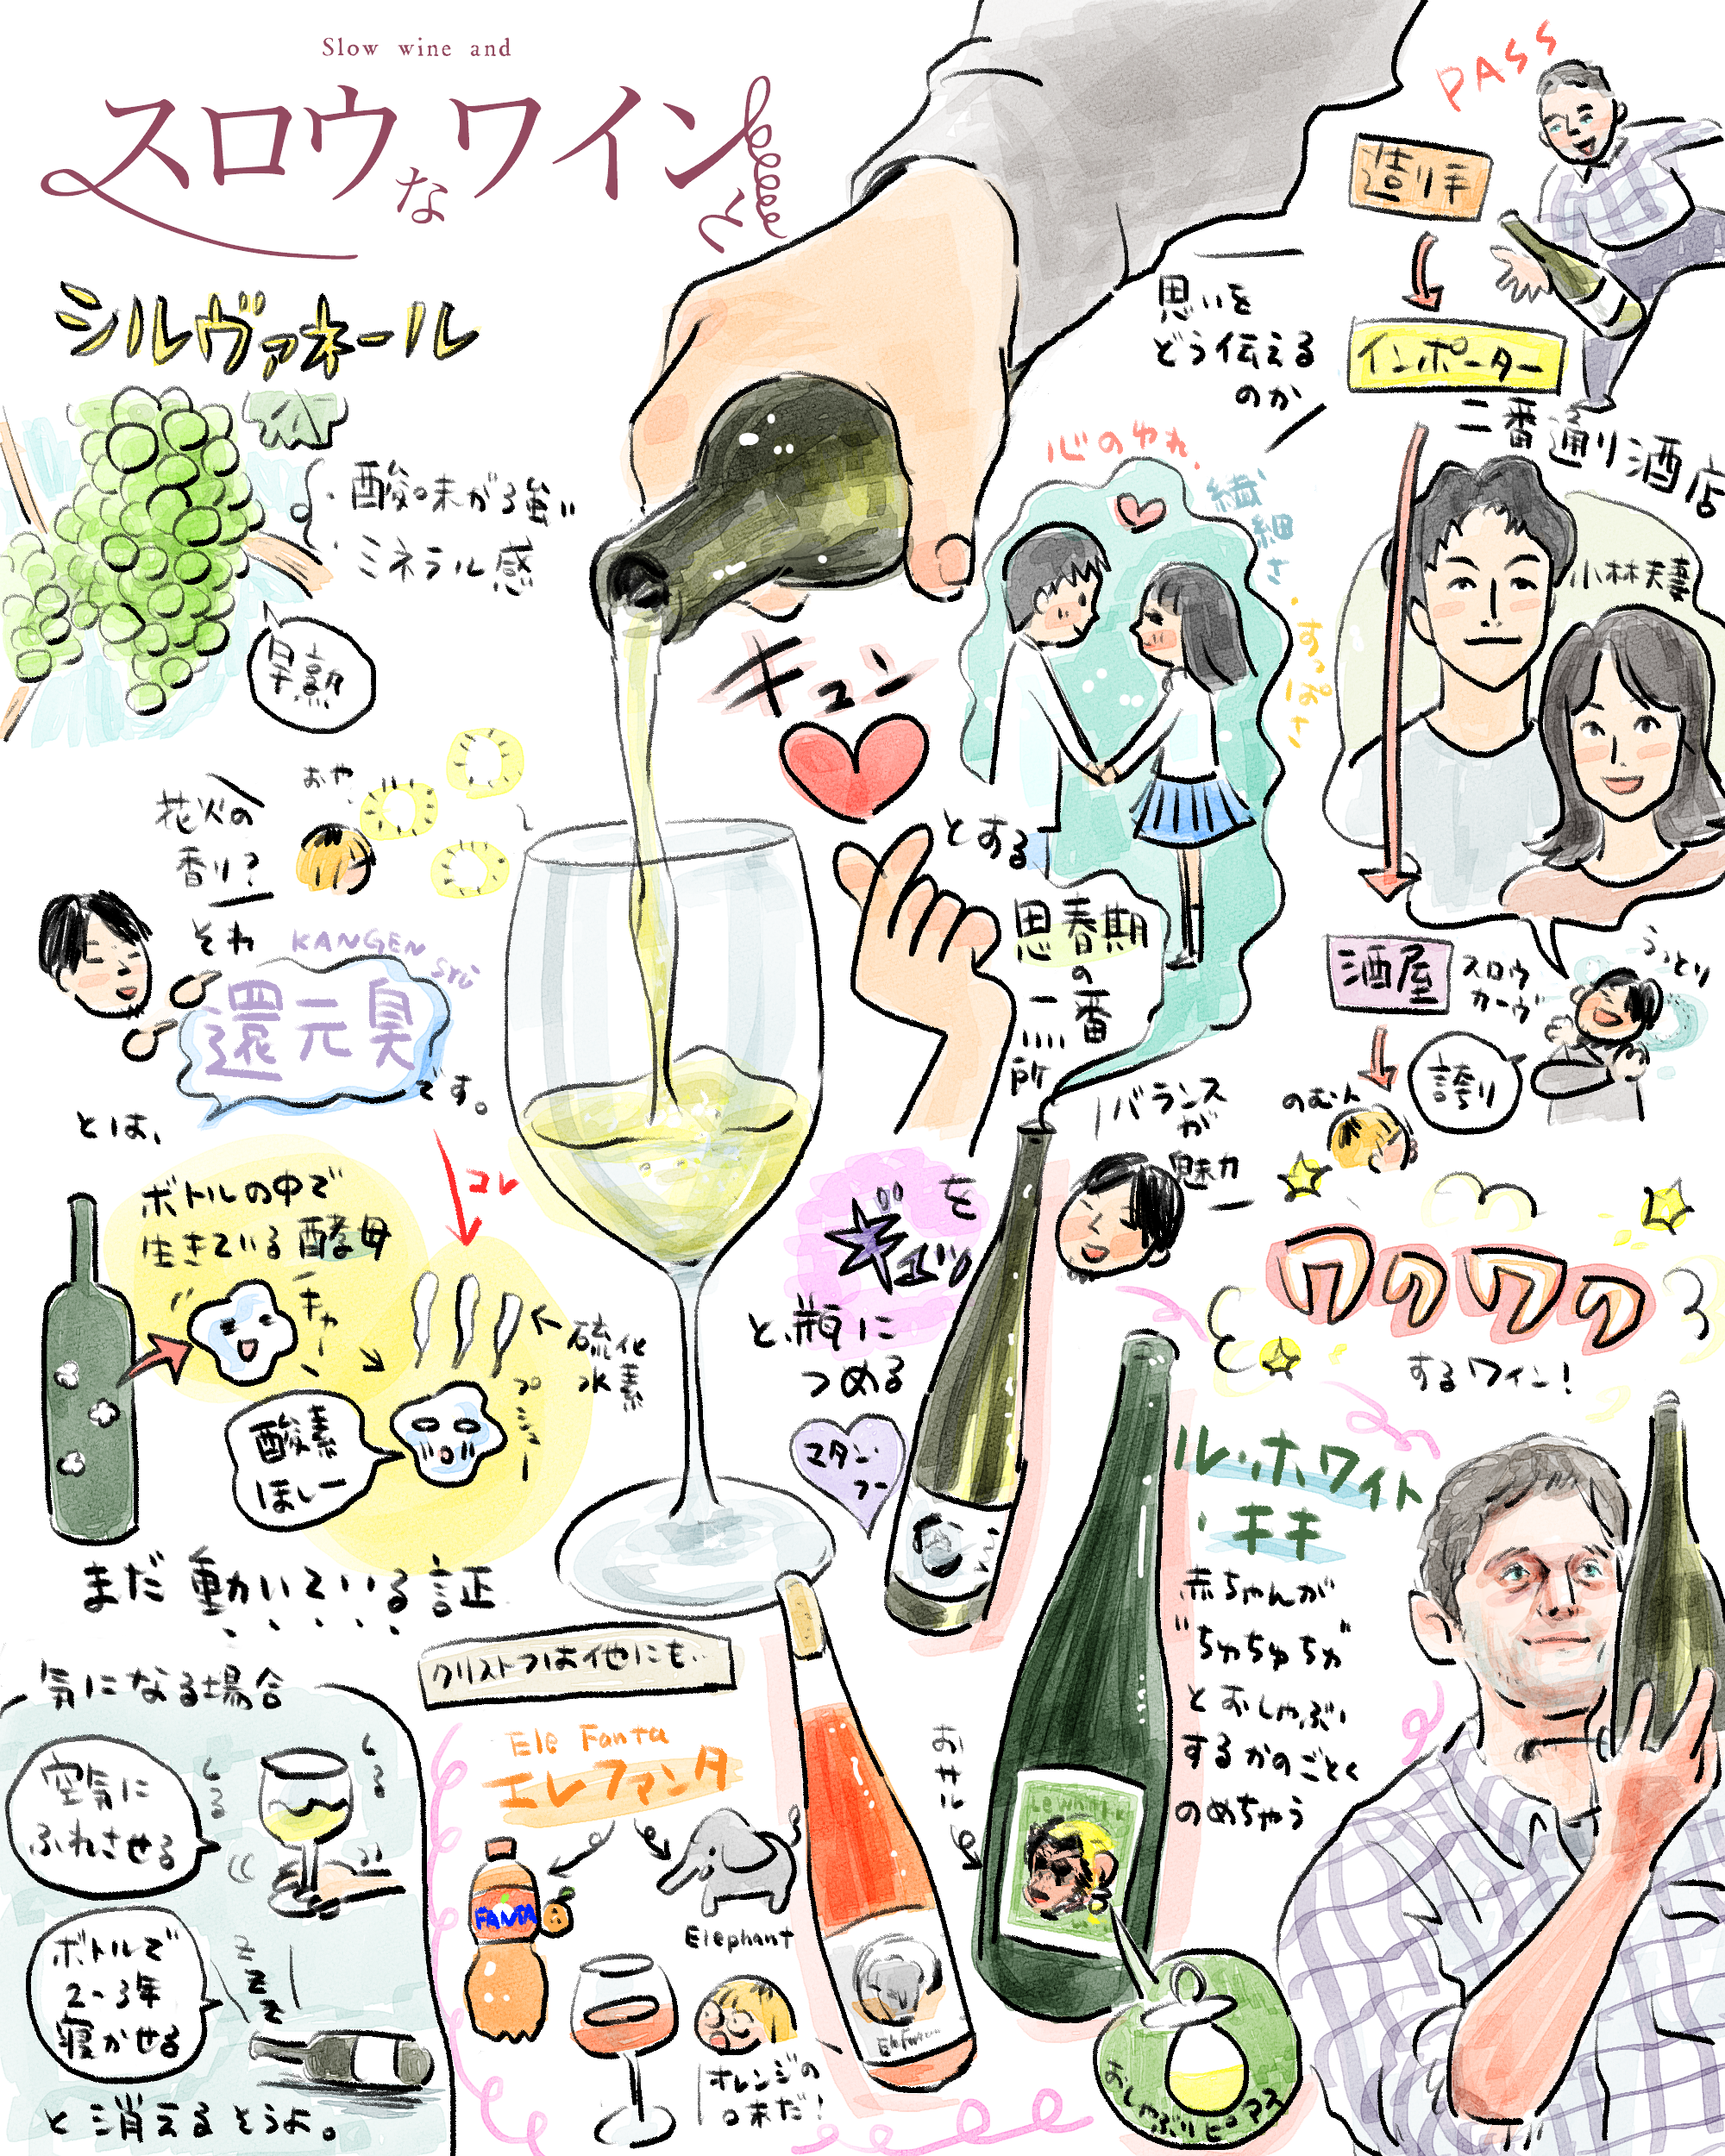 Slow wine and
スロウなワインと
シルヴァネール
・酸味が強い
・ミネラル感
早熟
花火の
香り?
おや、
それ
KANGEN
SYU
還元臭
です。
とは、
ボトルの中で
生きている酵母
キャー
コレ
硫化
水素
プシュー
酸素
ほしー
まだ動いている証
気になる場合
空気に
ふれさせる
くるくる
ボトルで
2〜3年
寝かせる
ZZZ
と消えるそうよ。
キュン
とする
心のゆれ、
繊細さ
・すっぱさ
思春期
の一番
を
ギュッ
と、瓶に
つめる
マタン・
フー
バランス
が
魅力
クリストフは他にも…
Ele Fanta
エレファンタ
FANTA
Elephant
オレンジの
味だ!
PASS
造り手
インポーター
思いを
どう伝える
のか
二番通り酒店
小林夫妻
酒屋
スロウ
カーヴ
うっとり
誇り
のむ人
ワクワク
するワイン!
ル・ホワイト
・キキ
赤ちゃんが
"ちゅちゅちゅ"
とおしゃぶい
するかのごとく
のめちゃう
おサル
おしゃぶりピアス